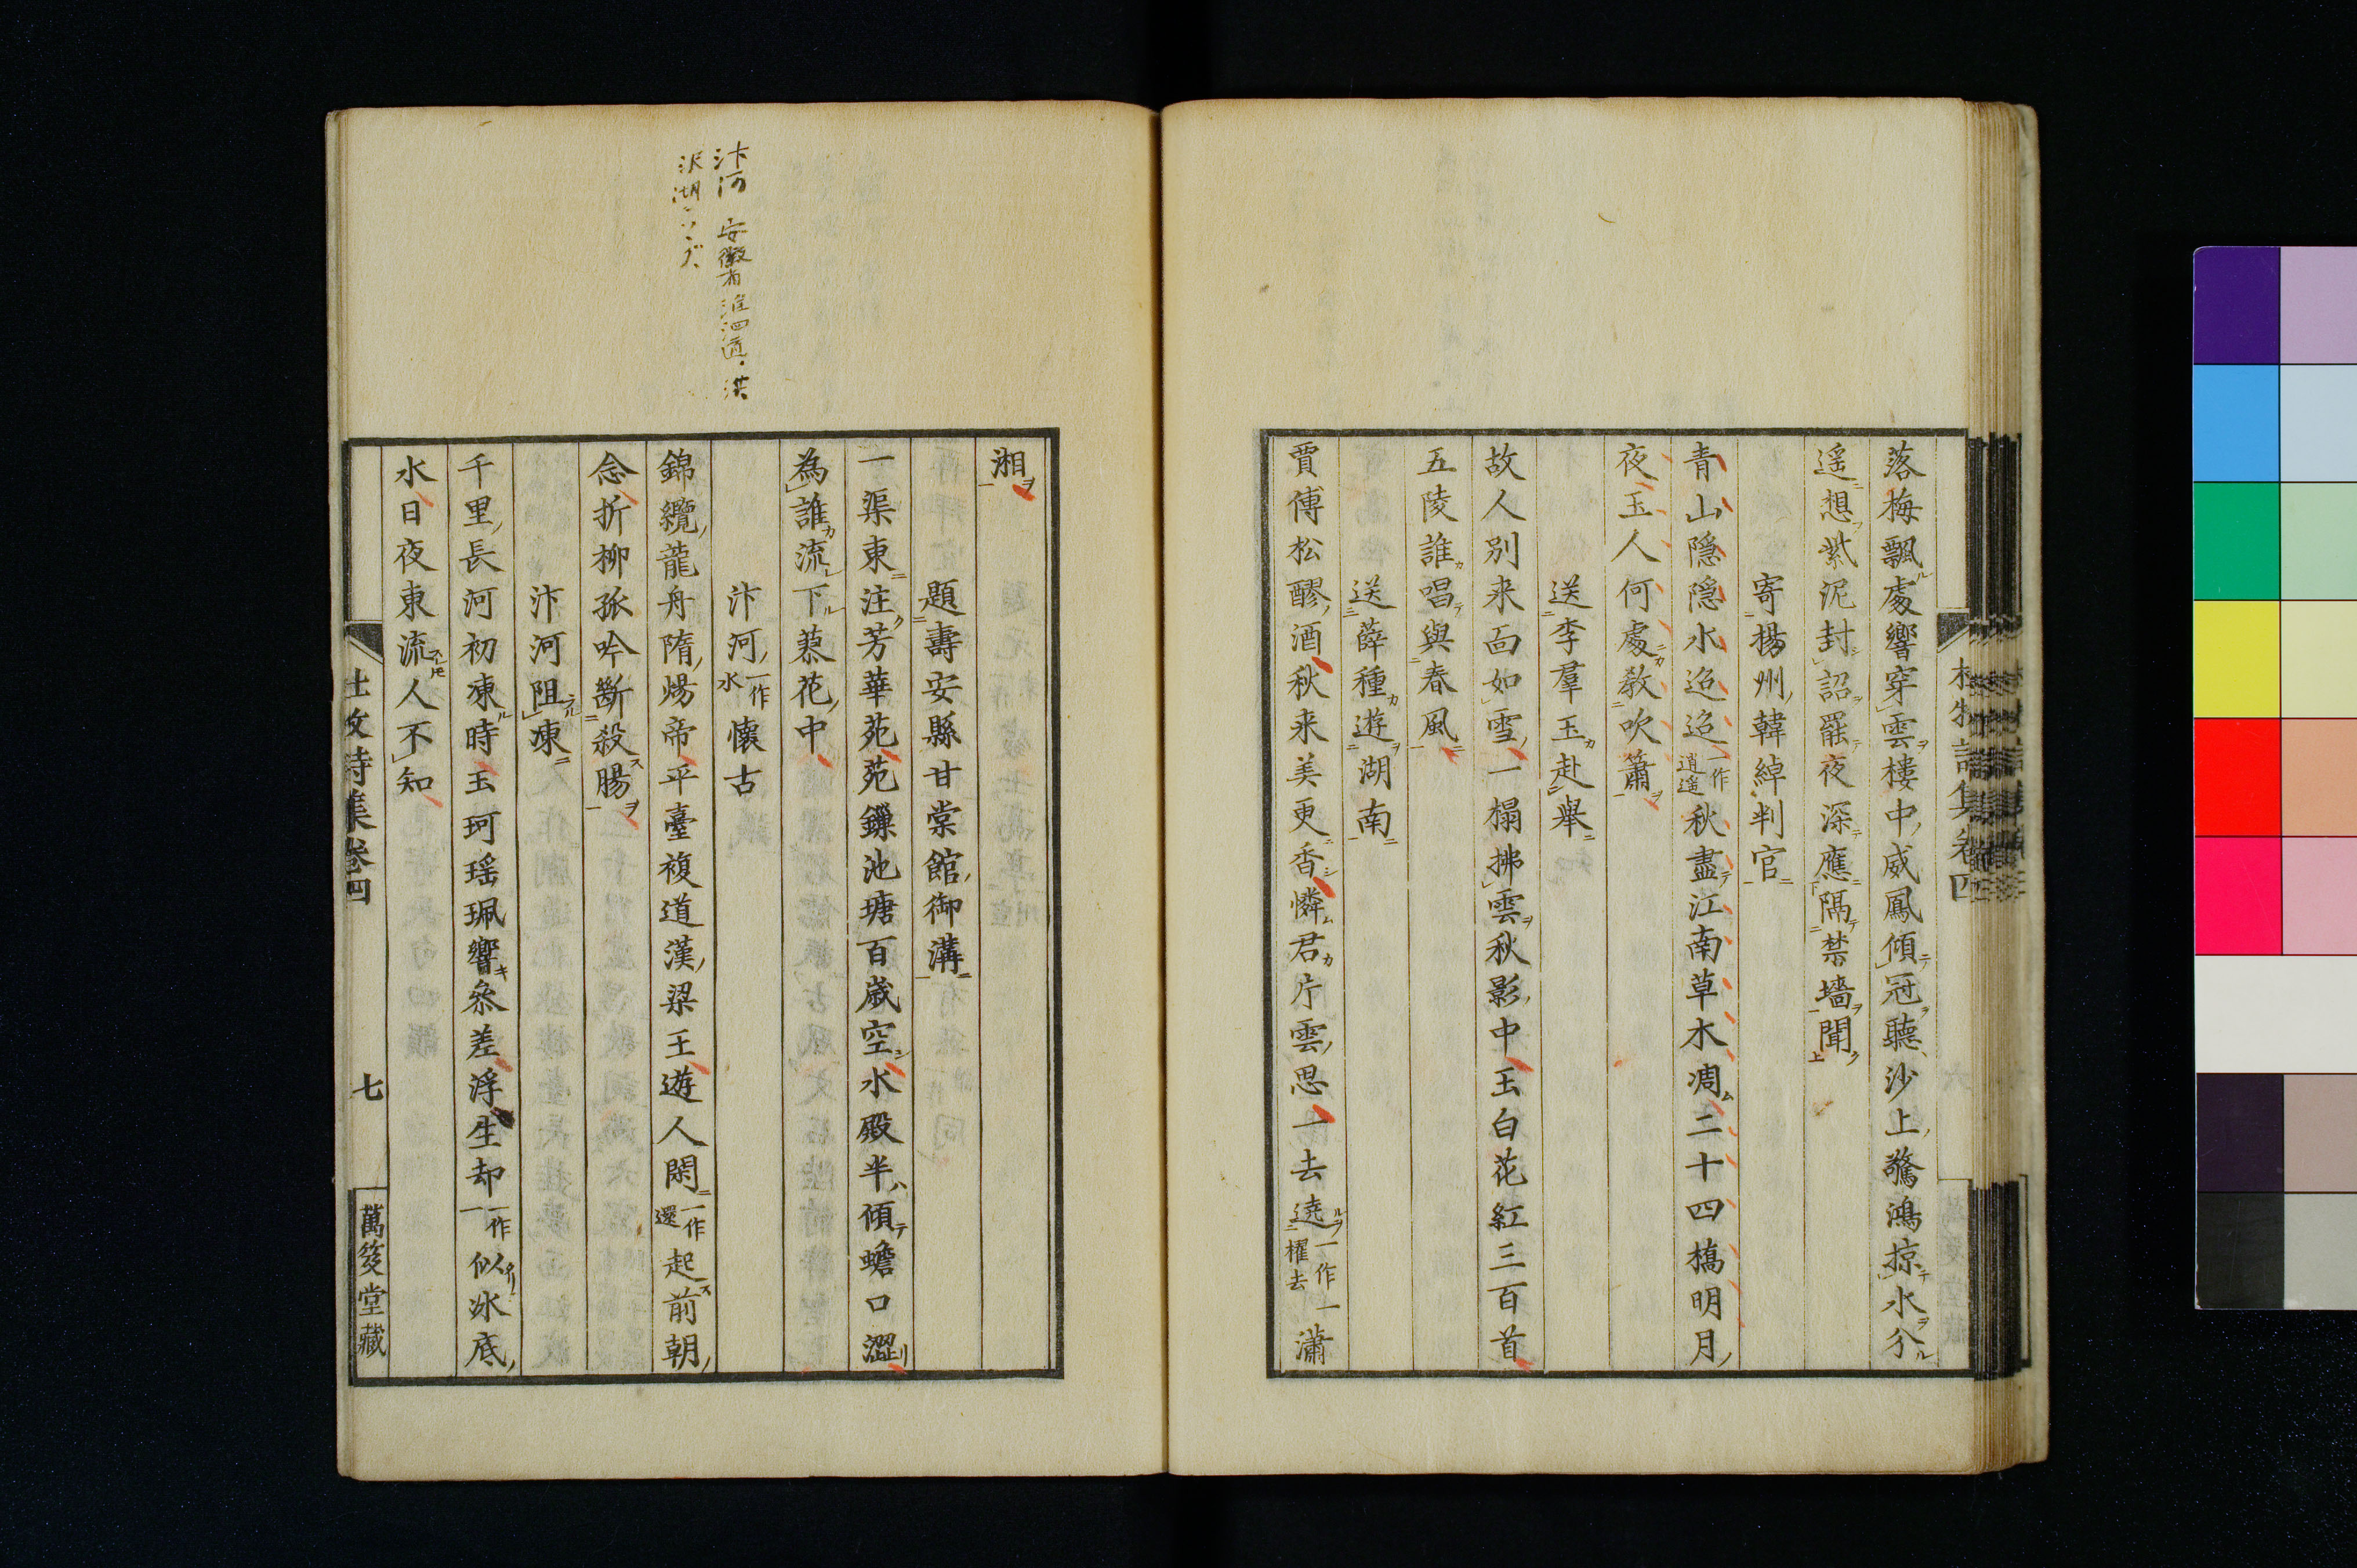 落梅飄處響穿雲樓中威鳳傾冠聽沙上驚鴻掠水分
遥想紫泥封詔罷夜深應隔禁墻聞
寄揚州韓綽判官
青山隠隠水迢迢一作逍遥秋盡江南草木凋二十四橋明月
夜玉人何處教吹簫
送李羣玉赴舉
故人別来面如雪一榻拂雲秋影中玉白花紅三百首
五陵誰唱與春風
送薛種遊湖南
賈傅松醪酒秋来美更香憐君片雲思一去遶一作一櫂去瀟
湘
題壽安縣甘棠館御溝
一渠東注芳華苑苑鏁池塘百歲空水殿半傾蟾口澀
為誰流下蓼花中
汴河一作水懷古
錦纜龍舟隋煬帝平臺複道漢梁王遊人閑一作還起前朝
念折柳孤吟斷殺腸
汴河阻凍
千里長河初凍時玉珂瑶珮響叅差浮生却一作一似冰底
水日夜東流人不知
杜牧詩集卷四
七
萬笈堂藏
汴河 安徽省淮泗道・洪
沢湖ニソソグ